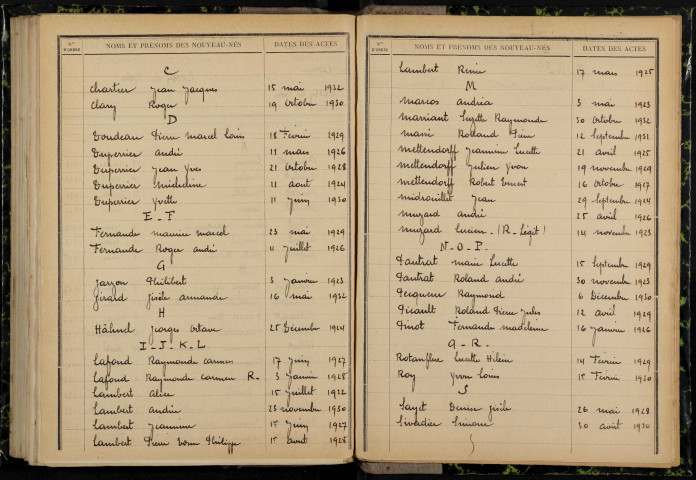 Nos D'ORDRE NOMS ET PRÉNOMS DES NOUVEAU-NÉS DATES DES ACTES
C
Chartier Jean Jacques 15 mai 1932
Clary Roger 19 Octobre 1930
D
Doudeau Pierre Marcel Louis 18 Février 1929
Duperrier André 11 mars 1926
Duperrier Jean Yves 21 Octobre 1928
Duperrier Micheline 11 août 1924
Duperrier Yvette 11 Juin 1930
E-F
Fernande Maurice Marcel 23 mai 1929
Fernande Roger André 11 Juillet 1926
G
Philibert 3 Janvier 1923
Girard Gisèle Armande 16 mai 1932
H
Hâhnel Georges Octave 25 Décembre 1924
I-J-K-L
Lafond Raymonde Carmen 17 Juin 1927
Lafond Raymonde Carmen R. 3 Janvier 1928
Lambert Alice 15 Juillet 1932
Lambert Andrée 23 novembre 1930
Lambert Jeannine 1er Juin 1927
Lambert Pierre Philippe 1er août 1928
Nos D'ORDRE NOMS ET PRÉNOMS DES NOUVEAU-NÉS DATES DES ACTES
Lambert Renée 17 mars 1925
M
Marcos Andréa 3 mai 1923
Marriant Suzette Raymonde 30 Octobre 1932
Massé Rolland Pierre 12 Septembre 1931
Mettendorff Jeannine Lucette 21 avril 1925
Mettendorff Julien Yvon 19 novembre 1929
Mettendorf Robert Vincent 16 Octobre 1927
Midrouillet Jean 29 Septembre 1924
Muzard André 25 avril 1926
Muzard Lucien - (R - Légit) 14 novembre 1923
N-O-P
Pautrat Marie Lucette 15 Septembre 1929
Pautrat Roland André 30 novembre 1923
Raymond 6 Décembre 1930
Picault Roland Pierre Jules 12 avril 1929
Pinot Fernande Madeleine 16 Janvier 1926
Q-R
Rotanfluu Lucette Hélène 14 Février 1929
Roy Yvon Louis 1er Février 1930
S
Sayet Denise Gisèle 26 mai 1928
Sivadier Simone 30 août 1930